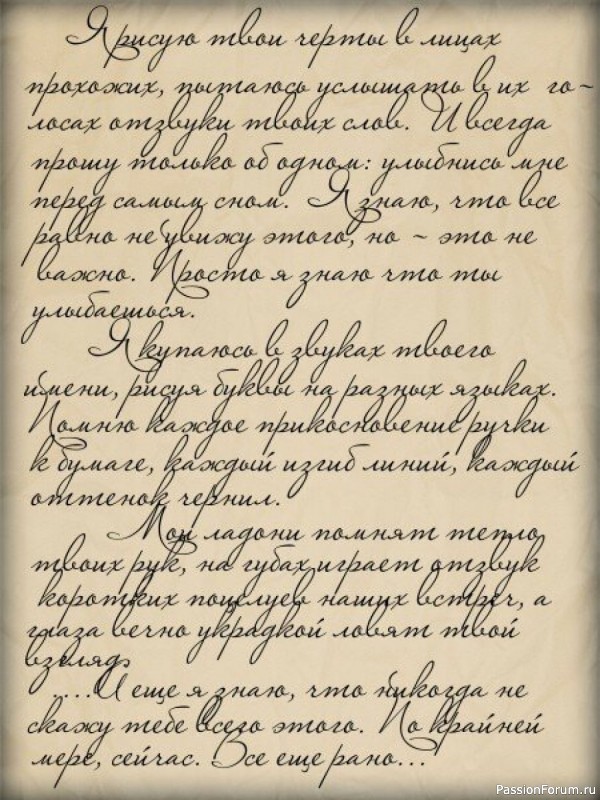 Я рисую твои черты в лицах
прохожих, пытаюсь услышать в их го-
лосах отзвуки твоих слов. И всегда
прошу только об одном: улыбнись мне
перед самым сном. Я знаю, что все
равно не увижу этого, но - это не
важно. Просто я знаю что ты
улыбаешься.
Я купаюсь в звуках твоего
имени, рисуя буквы на разных языках.
Помню каждое прикосновение ручки
к бумаге, каждый изгиб линий, каждый
оттенок чернил.
Мои ладони помнят тепло
твоих рук, на губах играет отзвук
коротких поцелуев наших встреч, а
глаза вечно украдкой ловят твой
взгляд
....И еще я знаю, что никогда не
скажу тебе всего этого. По крайней
мере, сейчас. Все еще рано...
PassionForum.ru